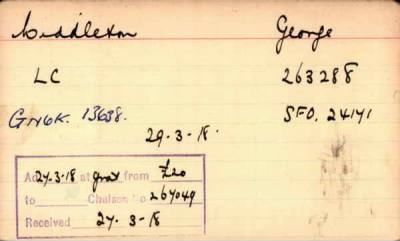 Middleton George
LC 263288
GN6K. 13638. SFO. 24141
29-3-18.
Ad 27-3-18 at from £20
to Chelsea No 267049
Received 27-3-18